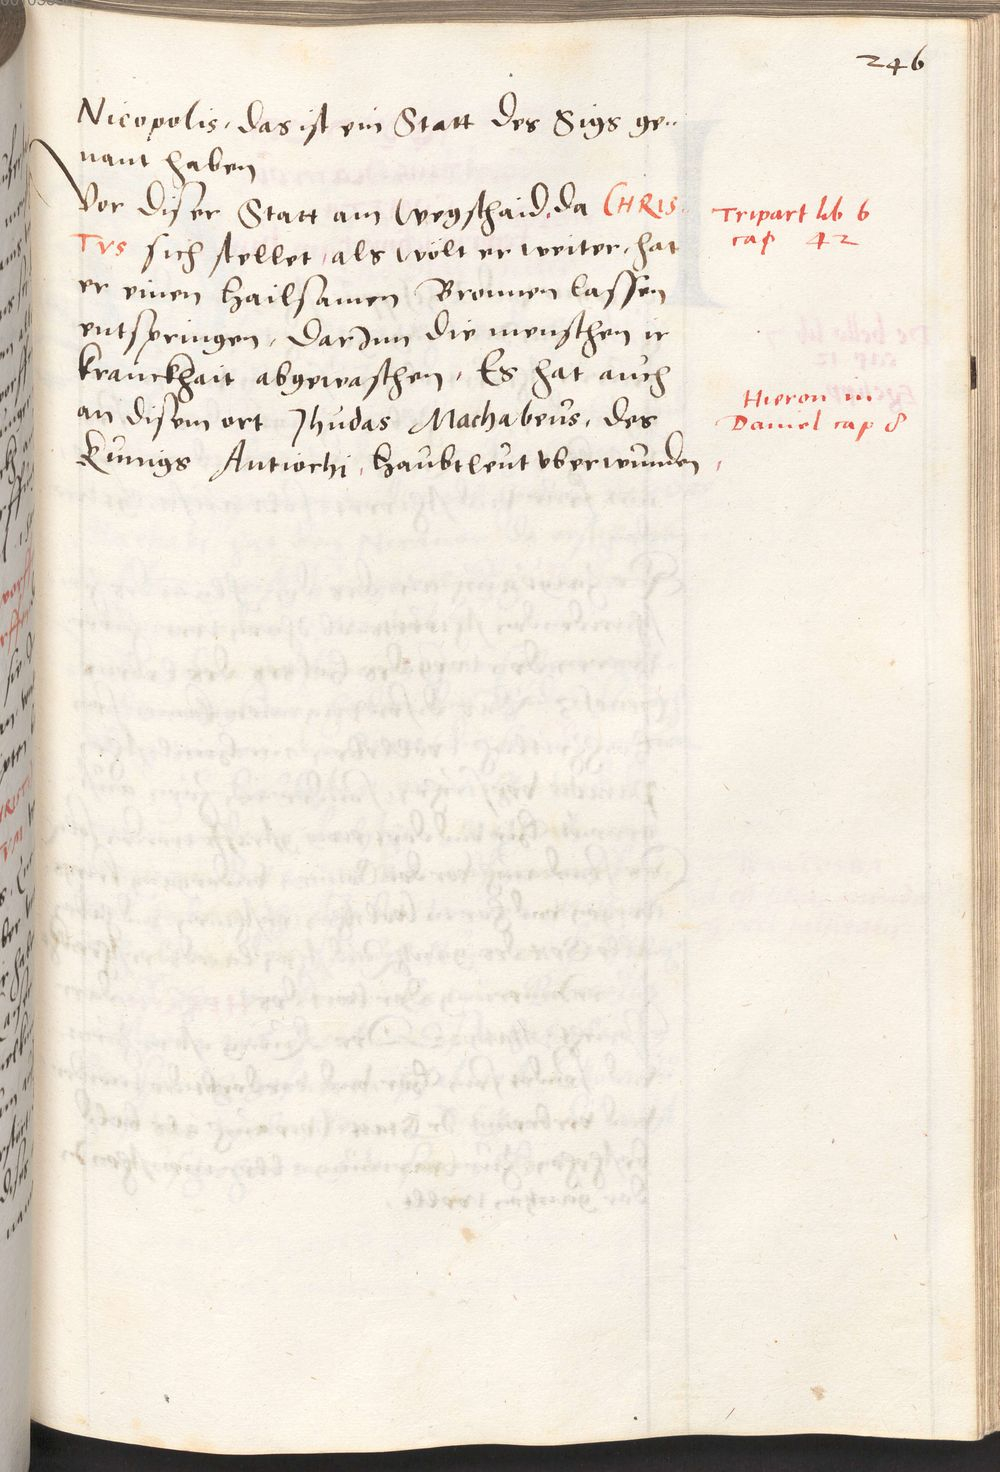 246
Nicopolis, das ist ein Statt des Sigs ge„
nant haben
Vor diser Statt am wegschaid, da CHRIS
TVS sich stellet, als wölt er weiter, hat
er einen hailsamen Bronnen lassen
entspringen, darJnn die menschen ir
kranckhait abgewaschen, Es hat auch
an disem ort Jhudas Machabeus, des
Kunigs Antiochi, haubtleut vberwunden,
Tripart lib 6
cap 42
Hieron in
Daniel cap 8